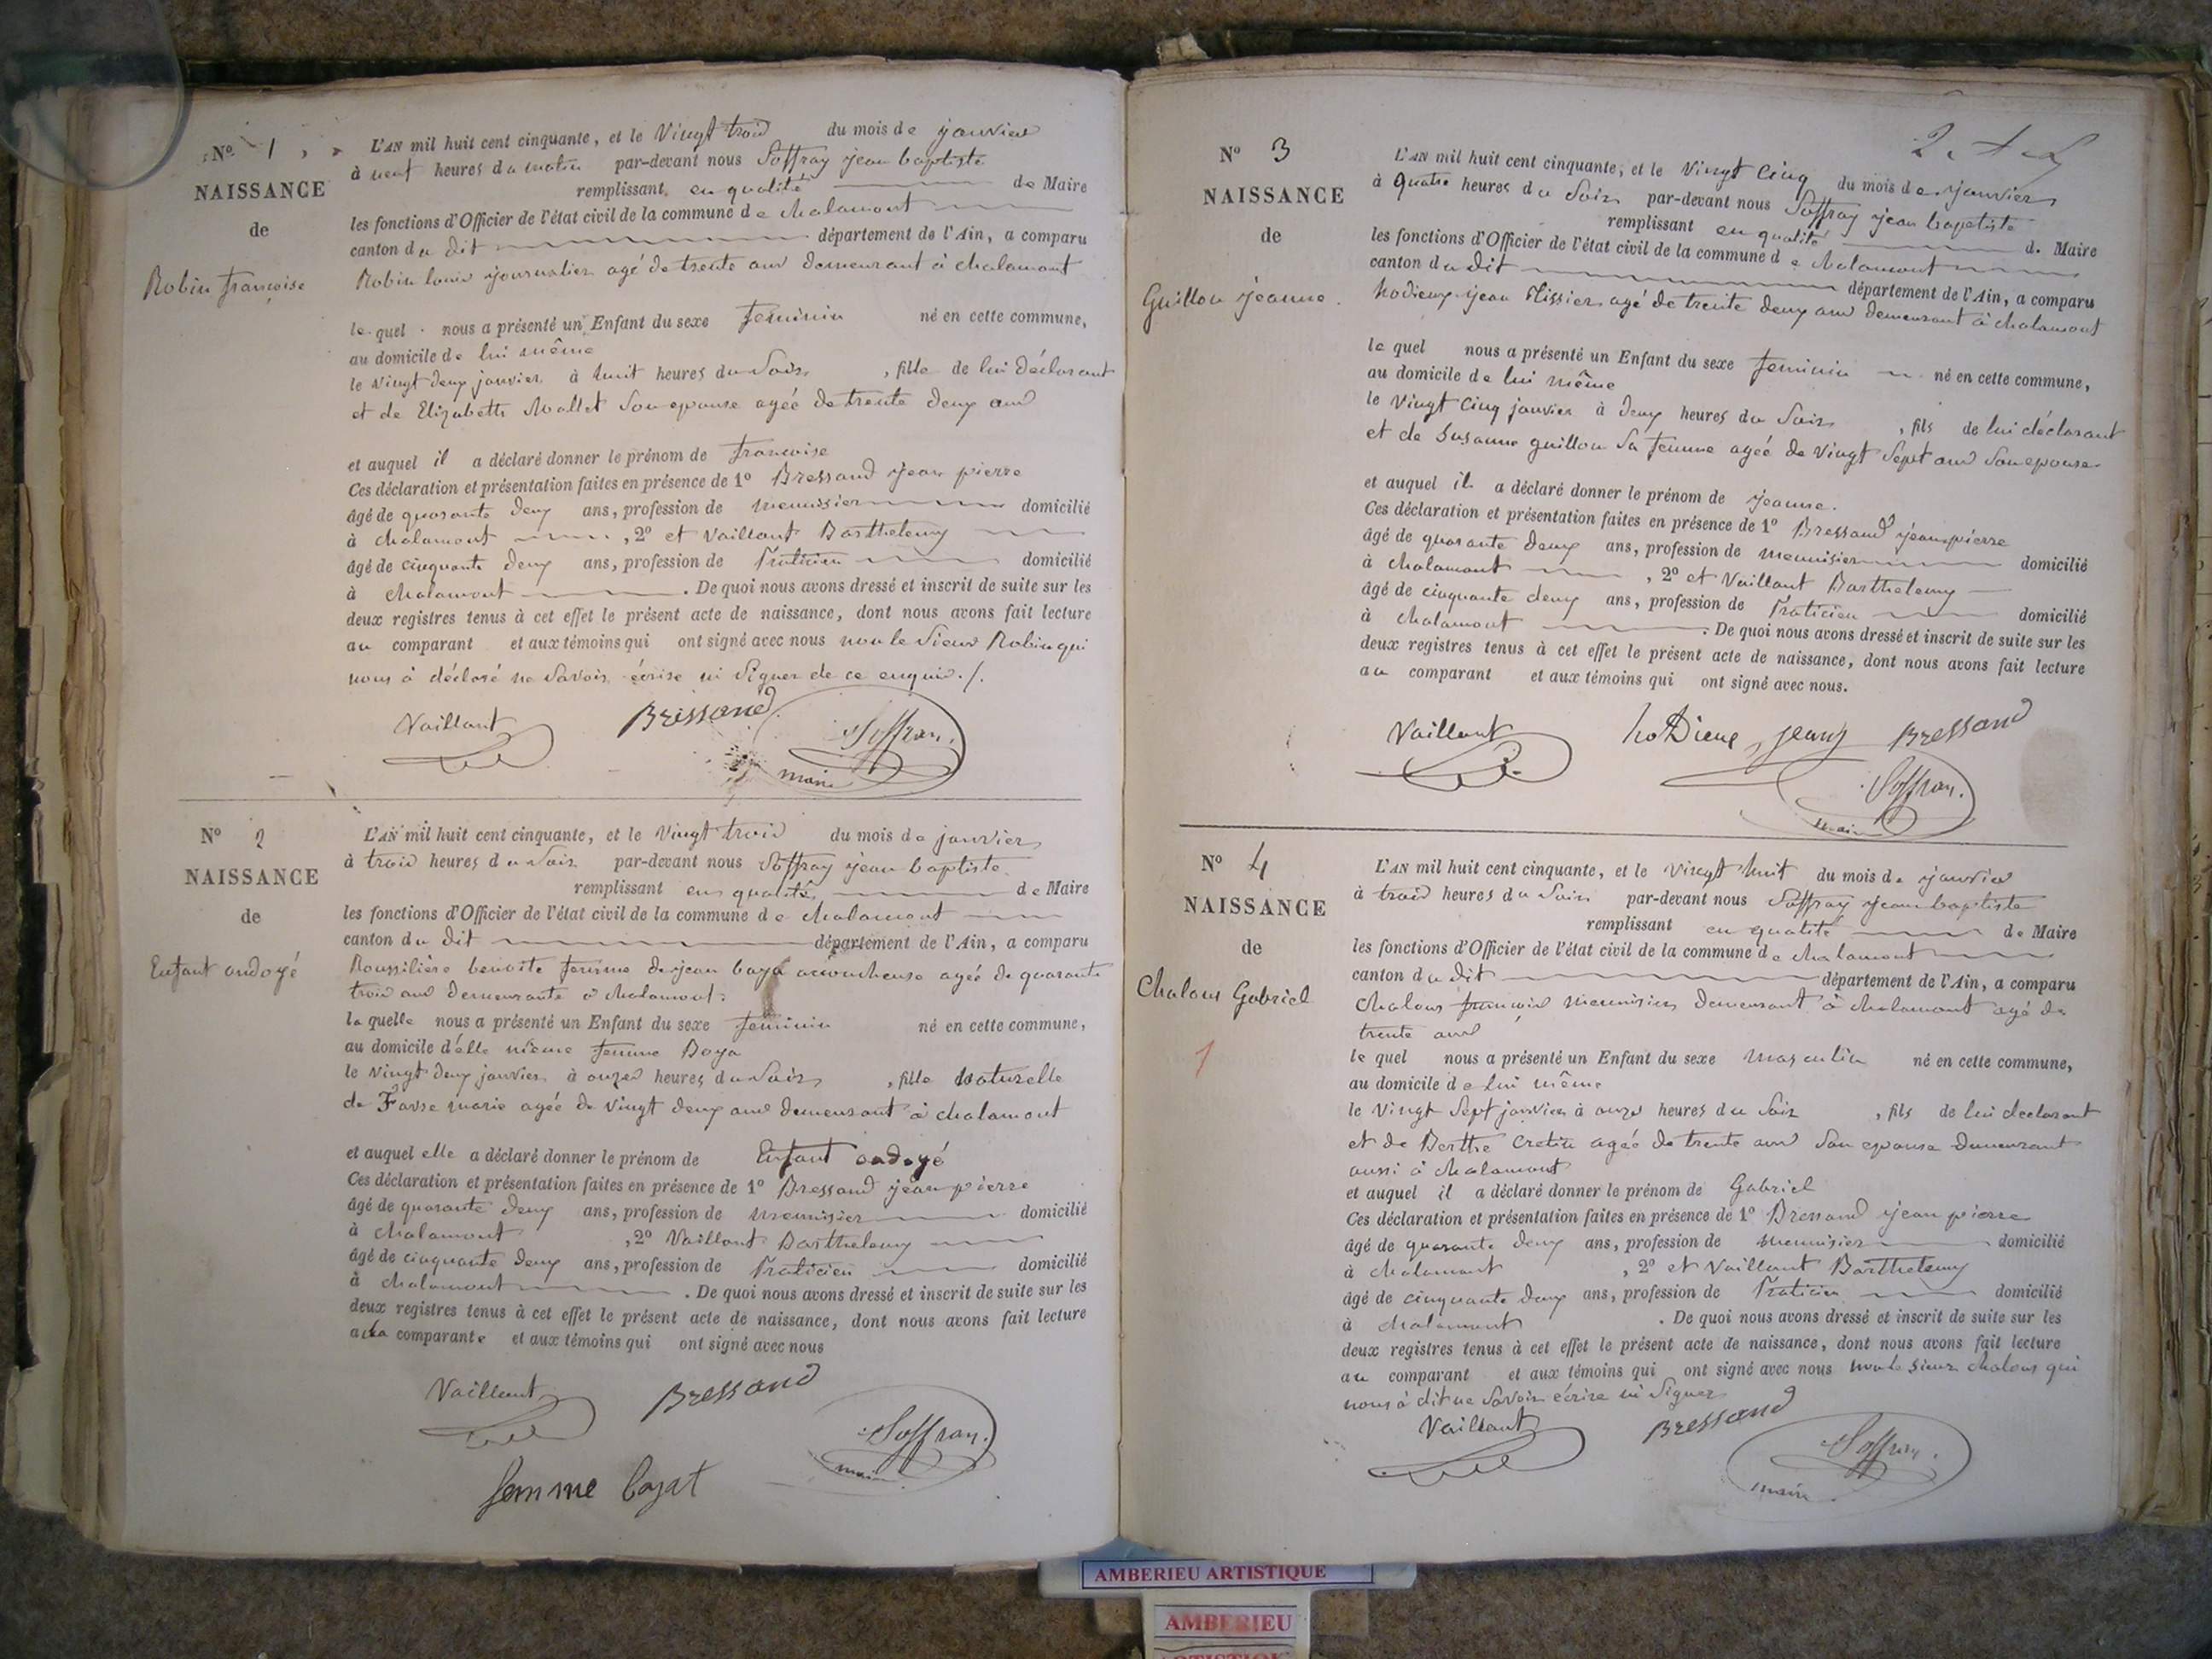 N° 1
NAISSANCE
de
Robin françoise
L'AN mil huit cent cinquante, et le Vingt trois du mois de janvier
à neuf heures du matin par-devant nous Soffray jean baptiste
remplissant en qualité de Maire
les fonctions d'Officier de l'état civil de la commune de chalamont
canton du dit département de l'Ain, a comparu
Robin louis journalier agé de trente ans demeurant à chalamont
le quel nous a présenté un Enfant du sexe feminin né en cette commune,
au domicile de lui même
le vingt deux janvier à huit heures du Soir, fille de lui déclarant
et de Elizabeth Mallet Son epouse agée de trente deux ans
et auquel il a déclaré donner le prénom de françoise
Ces déclaration et présentation faites en présence de 1° Bressand jean pierre
âgé de quarante deux ans, profession de menuisier domicilié
à chalamont, 2° et Vaillant Barthelemy
âgé de cinquante deux ans, profession de Praticien domicilié
à chalamont. De quoi nous avons dressé et inscrit de suite sur les
deux registres tenus à cet effet le présent acte de naissance, dont nous avons fait lecture
au comparant et aux témoins qui ont signé avec nous non le Sieur Robin qui
nous à déclaré ne Savoir écrire ni Signer de ce enquis ./.
Vaillant Bressand Soffray
maire
N° 2
NAISSANCE
de
Enfant ondoyé
L'AN mil huit cent cinquante, et le Vingt trois du mois de janvier
à trois heures du Soir par-devant nous Soffray jean baptiste
remplissant en qualité de Maire
les fonctions d'Officier de l'état civil de la commune de chalamont
canton du dit département de l'Ain, a comparu
Roussilière benoite femme de jean baya accoucheuse agée de quarante
trois ans demeurante à chalamont.
la quelle nous a présenté un Enfant du sexe feminin né en cette commune,
au domicile d'elle même femme Baya
le Vingt deux janvier à onze heures du Soir, fille Naturelle
de Favre marie agée de vingt deux ans demeurant à chalamont
et auquel elle a déclaré donner le prénom de Enfant ondoyé
Ces déclaration et présentation faites en présence de 1° Bressand jean pierre
âgé de quarante deux ans, profession de menuisier domicilié
à chalamont, 2° Vaillant Barthelemy
âgé de cinquante deux ans, profession de Praticien domicilié
à chalamont. De quoi nous avons dressé et inscrit de suite sur les
deux registres tenus à cet effet le présent acte de naissance, dont nous avons fait lecture
a la comparante et aux témoins qui ont signé avec nous
Vaillant Bressand Soffray
maire
femme bayat
N° 3
NAISSANCE
de
Guillon jeanne.
L'AN mil huit cent cinquante, et le Vingt Cinq du mois de janvier
à quatre heures du Soir par-devant nous Soffray jean baptiste
remplissant en qualité de Maire
les fonctions d'Officier de l'état civil de la commune de chalamont
canton du dit département de l'Ain, a comparu
hodieux jean agé de trente deux ans demeurant à chalamont
le quel nous a présenté un Enfant du sexe feminin né en cette commune,
au domicile de lui même
le Vingt Cinq janvier à deux heures du Soir, fils de lui déclarant
et de Susanne guillon Sa femme agée de Vingt Sept ans Son epouse
et auquel il a déclaré donner le prénom de jeanne.
Ces déclaration et présentation faites en présence de 1° Bressand jean pierre
âgé de quarante deux ans, profession de menuisier domicilié
à chalamont, 2° et Vaillant Barthelemy
âgé de cinquante deux ans, profession de Praticien domicilié
à chalamont. De quoi nous avons dressé et inscrit de suite sur les
deux registres tenus à cet effet le présent acte de naissance, dont nous avons fait lecture
au comparant et aux témoins qui ont signé avec nous.
Vaillant hoDieux jean Bressand
Soffray.
maire
N° 4
NAISSANCE
de
Chalons Gabriel
1
L'AN mil huit cent cinquante, et le vingt huit du mois de janvier
à trois heures du Soir par-devant nous Soffray jean baptiste
remplissant en qualité de Maire
les fonctions d'Officier de l'état civil de la commune de chalamont
canton du dit département de l'Ain, a comparu
Chalons françois menuisier demeurant à chalamont agé de
trente ans
le quel nous a présenté un Enfant du sexe masculin né en cette commune,
au domicile de lui même
le Vingt Sept janvier à onze heures du Soir, fils de lui déclarant
et de Berthe Cretin agée de trente ans Son epouse demeurant
aussi à chalamont
et auquel il a déclaré donner le prénom de Gabriel
Ces déclaration et présentation faites en présence de 1° Bressand jean pierre
âgé de quarante deux ans, profession de menuisier domicilié
à chalamont, 2° et Vaillant Barthelemy
âgé de cinquante deux ans, profession de Praticien domicilié
à chalamont. De quoi nous avons dressé et inscrit de suite sur les
deux registres tenus à cet effet le présent acte de naissance, dont nous avons fait lecture
au comparant et aux témoins qui ont signé avec nous non le Sieur chalons qui
nous à dit ne Savoir écrire ni Signer
Vaillant Bressand Soffray.
maire
AMBERIEU ARTISTIQUE
AMBERIEU
ARTISTIQUE